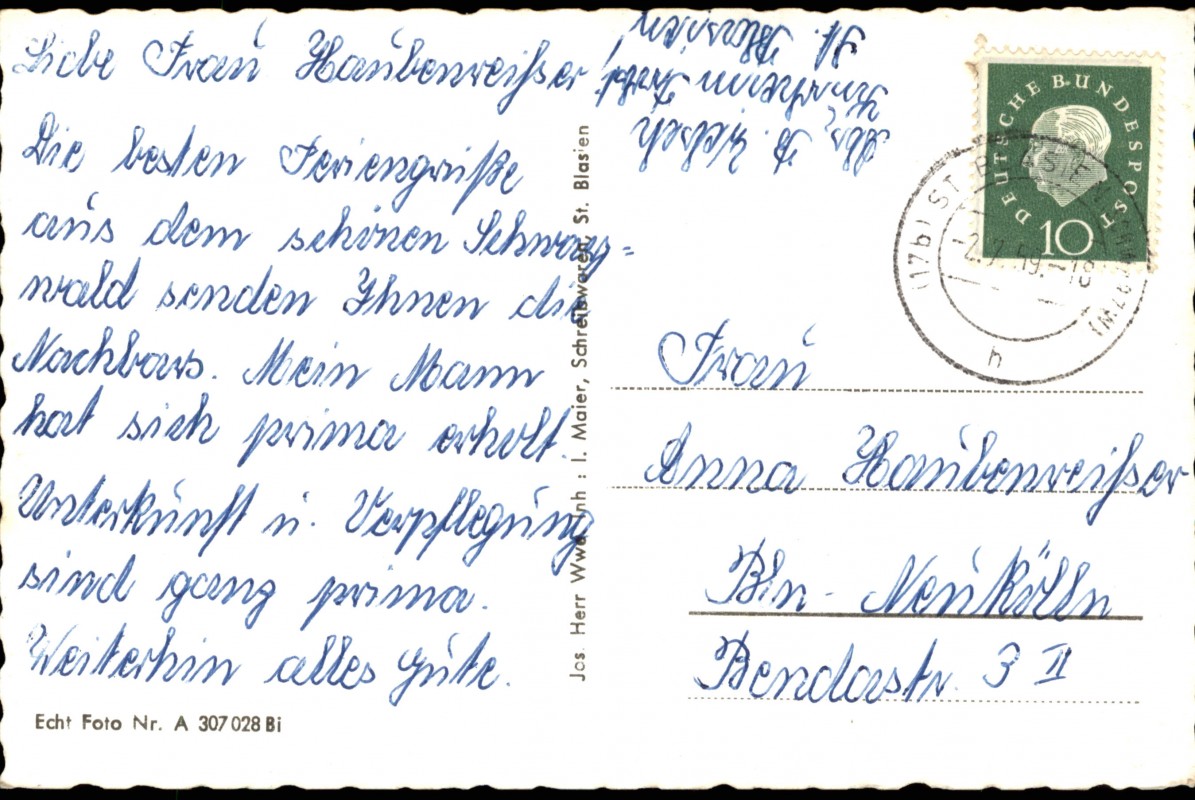 Liebe Frau Haubenreißer!
Die besten Feriengrüße
aus dem schönen Schwarz=
wald senden Ihnen die
Nachbars. Mein Mann
hat sich prima erholt.
Unterkunft u. Verpflegung
sind ganz prima.
Weiterhin alles Gute.
Echt Foto Nr. A 307028 Bi
Jos. Herr Wwe Inh : I. Maier, Schreibwaren, St. Blasien
Abs.
St. Blasien
DEUTSCHE BUNDESPOST
10
(17b) ST. BLASIEN (SCHWARZW)
59.-18
h
Frau
Anna Haubenreißer
Bln - Neukölln
Bendastr. 3 II